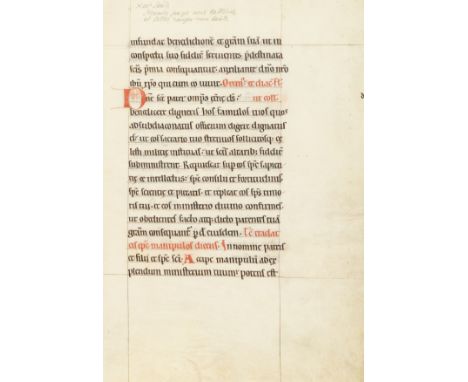 infundat benedictionẽ et gr̃am suã. ut in
conspectu suo fideliẽ servientes p̃destinata
sc̃is p̃mia consequantur. auxiliante dño nr̃o
ihũ xp̃o qui cum eo vivit.
Dñe sc̃e pater omp̃s eterñe ds̃.
benedicere digneris hos famulos tuos quos
ad subdiaconatus officium eligere dignatus
es. ut eos sacrario tuo strenuos sollicitosq; ce
lestis militię instituas. ut sc̃is altarib; fidelit̃
subministrent. Requiescat sup eos sp̃c sapien
tię et intellectus. sp̃c consilii et fortitudinis
sp̃c scientię et pietatis. et repleat eos sp̃c timo
ris tui. et eos in ministerio divino confirmes.
ut obedientes facto atq; dicto parentes tuã
gr̃am consequant̃. p d̃. eiusdem. tradat
eis ep̃c manipulos dicens. In nomine patris
et filii et sp̃c sc̃i. Accipe manipulũ ad ex
plendum ministerium tuum. potens est